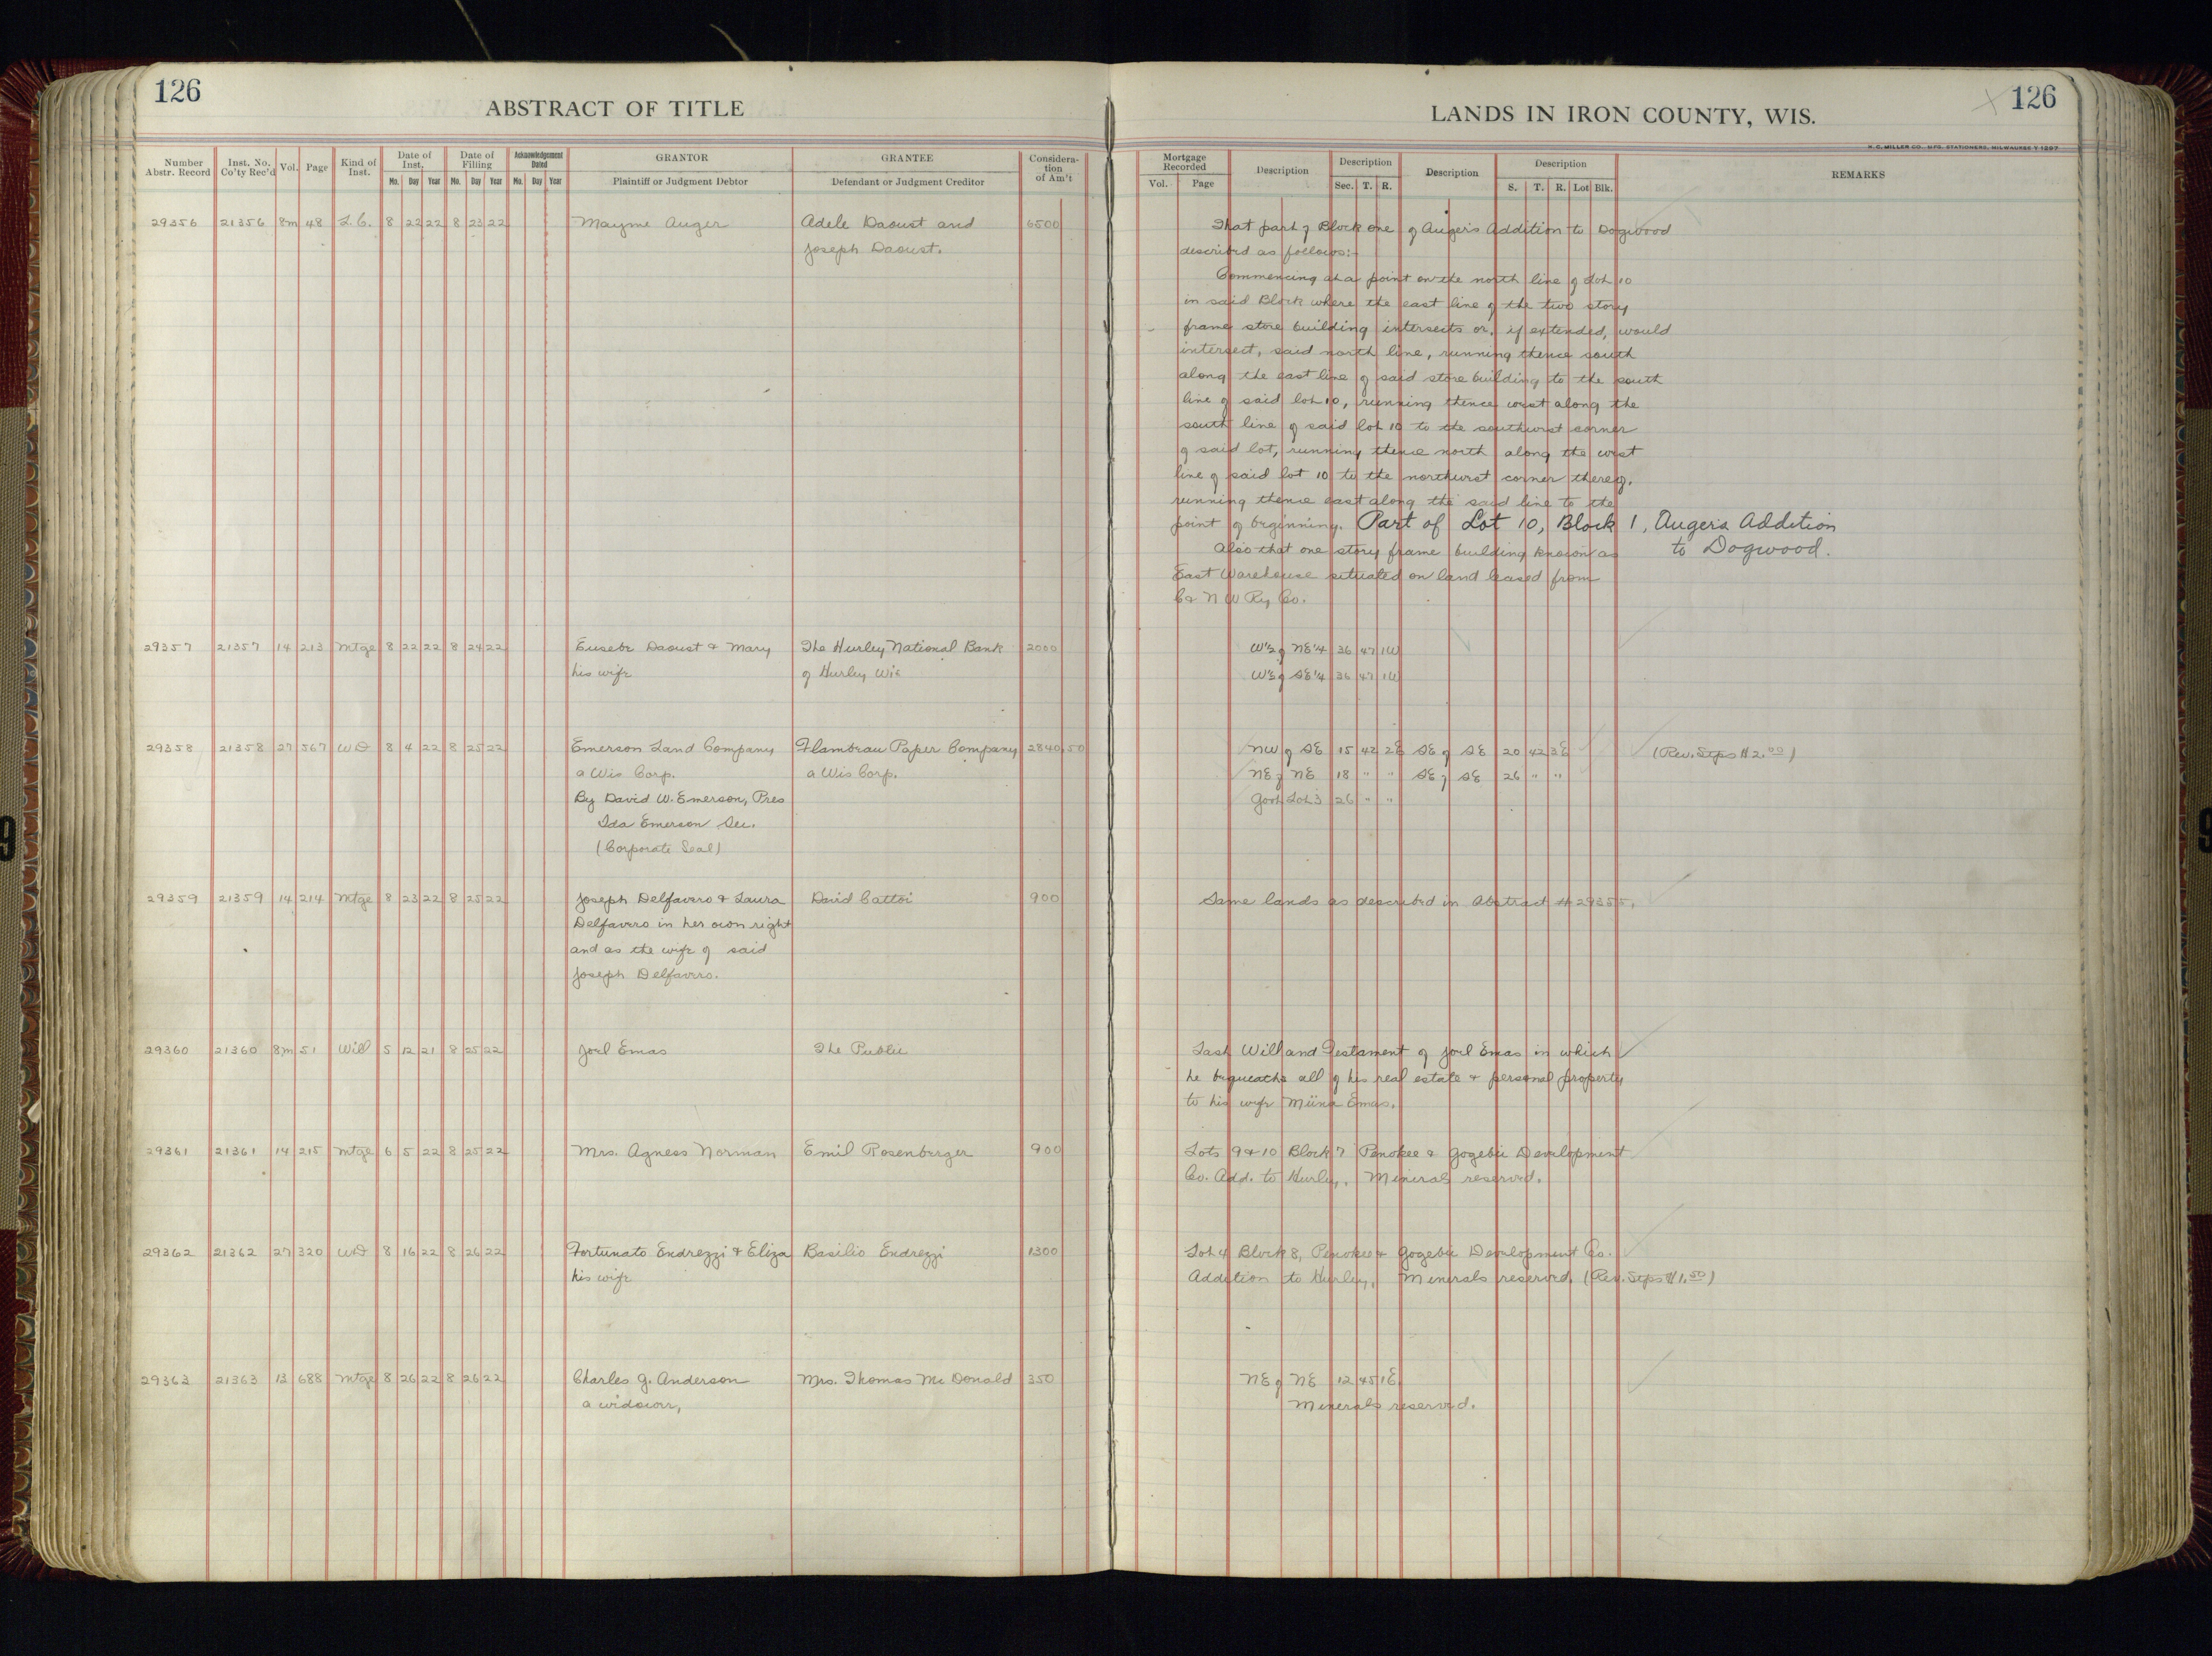 126
ABSTRACT OF TITLE
Number Abstr. Record | Inst. No. Co'ty Rec'd | Vol. | Page | Kind of Inst. | Date of Inst. Mo. Day Year | Date of Filing Mo. Day Year | Acknowledgement Dated Mo. Day Year | GRANTOR Plaintiff or Judgment Debtor | GRANTEE Defendant or Judgment Creditor | Consideration of Am't
29356 21356 8m 48 L.C. 8 22 22 8 23 22 Mayme Auger Adele Daoust and 6500
Joseph Daoust.
29357 21357 14 213 Mtge 8 22 22 8 24 22 Eusebe Daoust & Mary The Hurley National Bank 2000
his wife of Hurley Wis
29358 21358 27 567 WD 8 4 22 8 25 22 Emerson Land Company Flambeau Paper Company 2840.50
a Wis Corp. a Wis Corp.
By David W. Emerson, Pres
Ida Emerson Sec.
(Corporate Seal)
29359 21359 14 214 Mtge 8 23 22 8 25 22 Joseph Delfavero & Laura David Cattoi 900
Delfavero in her own right
and as the wife of said
Joseph Delfavero.
29360 21360 8m 51 Will 5 12 21 8 25 22 Joel Emas The Public
29361 21361 14 215 Mtge 6 5 22 8 25 22 Mrs. Agness Norman Emil Rosenberger 900
29362 21362 27 320 WD 8 16 22 8 26 22 Fortunato Endrezzi & Eliza Basilio Endrezzi 1300
his wife
29363 21363 13 688 Mtge 8 26 22 8 26 22 Charles G. Anderson Mrs. Thomas McDonald 350
a widower,
126
LANDS IN IRON COUNTY, WIS.
H. C. MILLER CO. MFG. STATIONERS, MILWAUKEE
Mortgage Recorded Vol. Page | Description | Description Sec. T. R. | Description | Description S. T. R. Lot Blk. | REMARKS
That part of Block one of Auger's Addition to Dogwood
described as follows:-
Commencing at a point on the north line of Lot 10
in said Block where the east line of the two story
frame store building intersects or, if extended, would
intersect, said north line, running thence south
along the east line of said store building to the south
line of said lot 10, running thence west along the
south line of said lot 10 to the southwest corner
of said lot, running thence north along the west
line of said lot 10 to the northwest corner thereof,
running thence east along the said line to the
point of beginning. Part of Lot 10, Block 1, Auger's Addition
to Dogwood.
Also that one story frame building known as
East Warehouse situated on land leased from
C & N W Ry Co.
W½ of NE¼ 36 47 1W
W½ of SE¼ 36 47 1W
NW of SE 15 42 2E SE of SE 20 42 3E (Rev. Stps $2.00)
NE of NE 18 " " SE of SE 26 " "
Govt Lot 3 26 " "
Same lands as described in Abstract #29355.
Last Will and Testament of Joel Emas in which
he bequeaths all of his real estate & personal property
to his wife Miina Emas.
Lots 9 & 10 Block 7 Penokee & Gogebic Development
Co. Add. to Hurley. Minerals reserved.
Lot 4 Block 8, Penokee & Gogebic Development Co.
Addition to Hurley, Minerals reserved. (Rev. Stps $1.50)
NE of NE 12 45 1E
Minerals reserved.